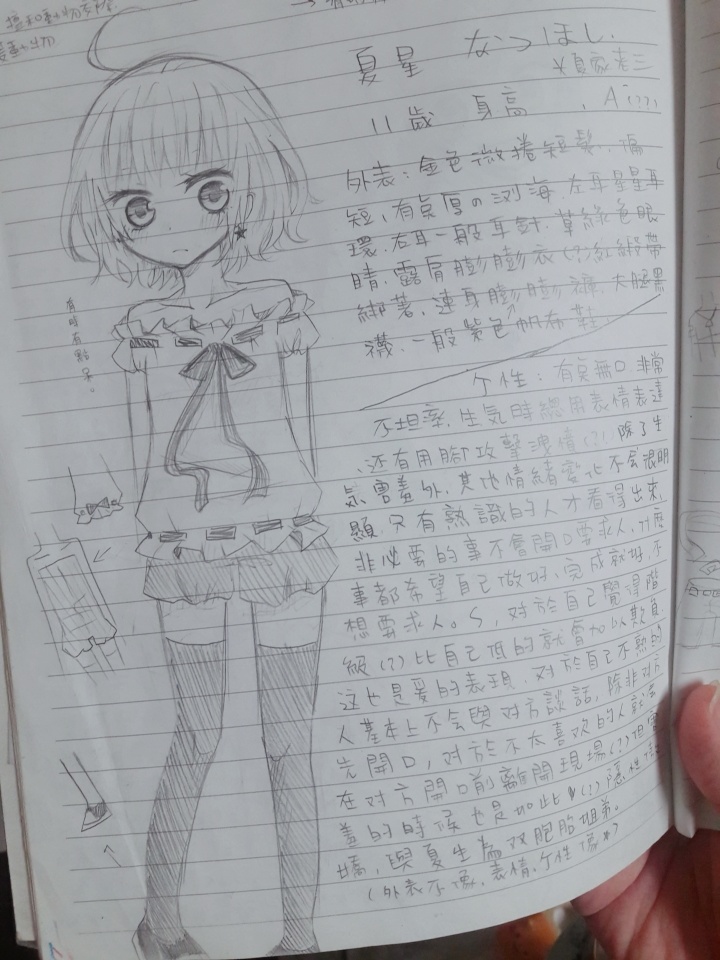 夏星 なつほし.
×貞家老三
11歲 身高 , A(??)
外表:金色微捲短髮,偏
短,有貞厚の浏海,左耳星星耳
環,右耳一般耳針,草綠色眼
睛,露肩膨膨衣(?)紅緞帶
綁著,連身膨膨褲,大腿黑
襪,一般紫色帆布鞋,
有時有點呆。
个性:有臭無口,非常
不坦率,生気時總用表情表達
,還有用腳攻擊洩憤(?),除了生
気害羞外,其他情緒變化不会很明
顯,只有熟識的人才看得出來,
非必要的事不會開口要求人,什麼
事都希望自己做好、完成就好,不
想要求人。S,對於自己覺得階
級(?)比自己低的就會加以欺負,
這也是愛的表現,對於自己不熟的
人基本上不会與對方談話,除非對方
先開口,對於不太喜欢的人就会
在對方開口前離開現場(?)但害
羞的時候也是如此♥(?)隱性
嬌,與夏生為双胞胎姐弟。
(外表不像,表情、个性像*)